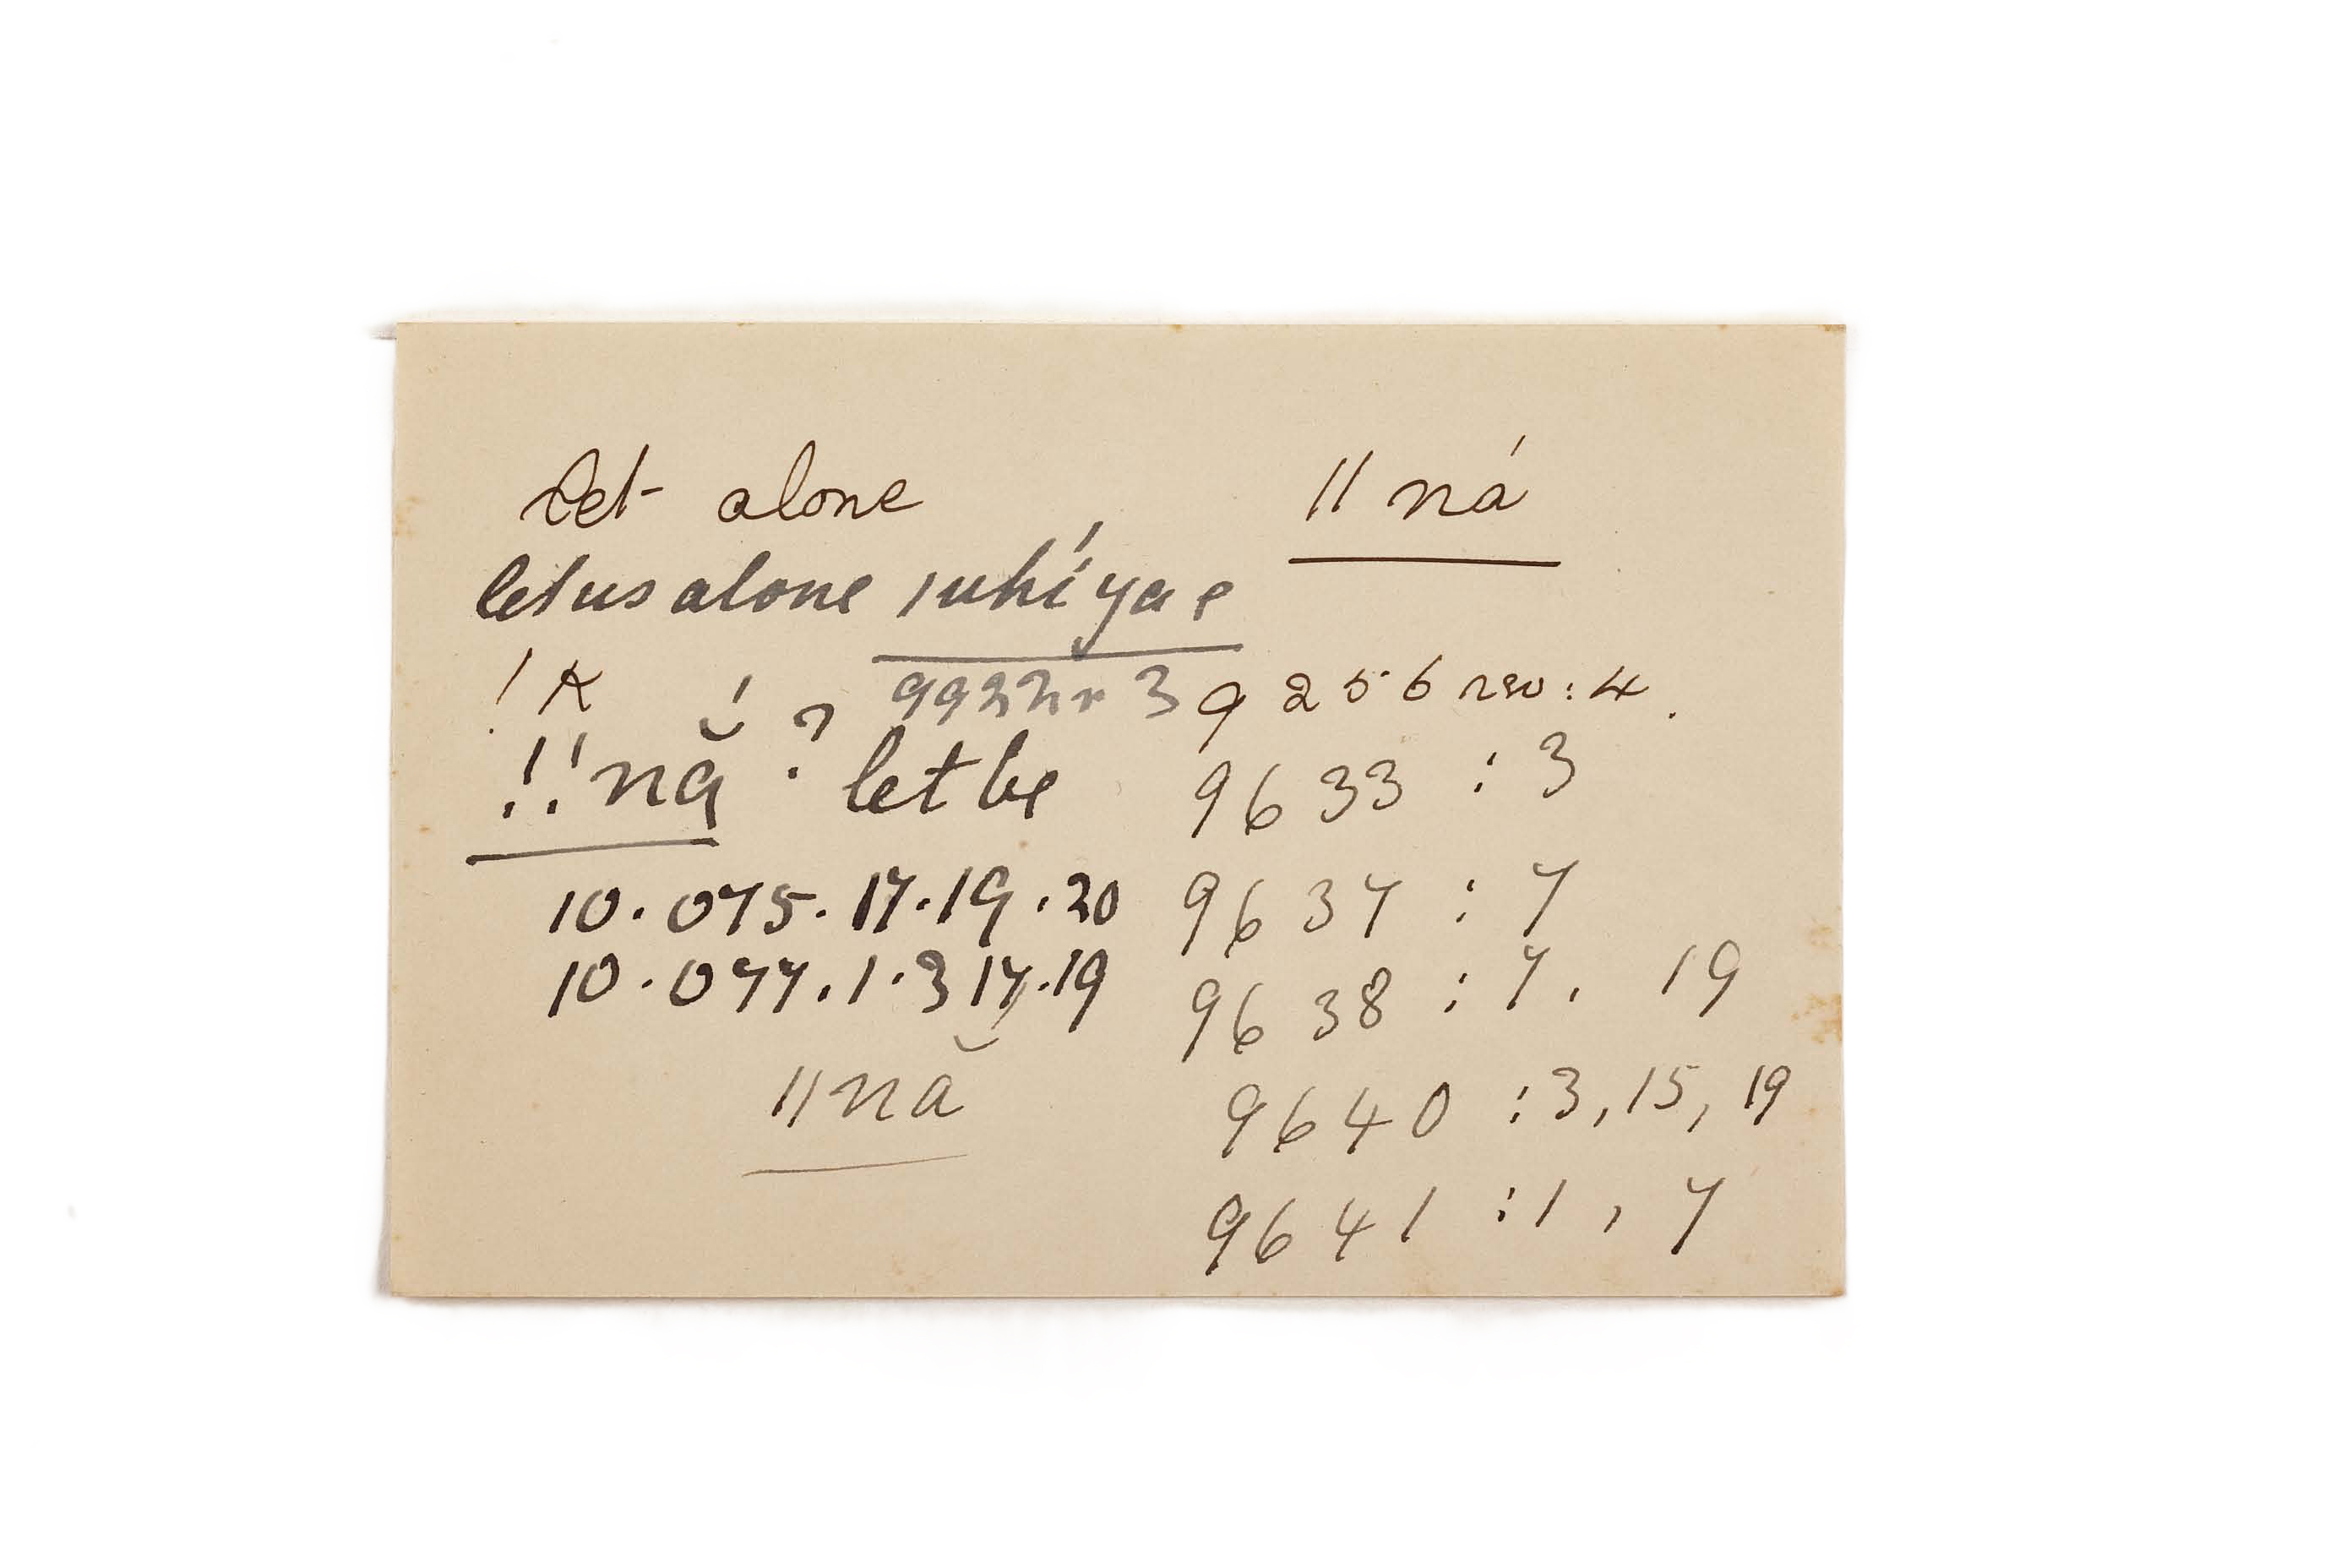 Let alone ǁná
let us alone ǀuhí ya e
!k 9922r3 9256 rev: 4.
!! nắ̱ ? let be 9633 : 3
10.075.17.19.20 9637 : 7
10.077.1.3 17.19 9638 : 7, 19
ǁnă 9640 : 3, 15, 19
9641 : 1, 7